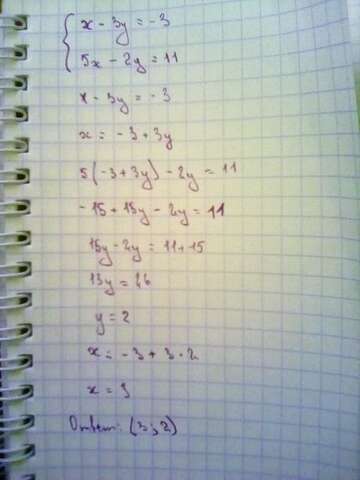 x - 3y = -3
5x - 2y = 11
x - 3y = -3
x = -3 + 3y
5(-3 + 3y) - 2y = 11
-15 + 15y - 2y = 11
15y - 2y = 11 + 15
13y = 26
y = 2
x = -3 + 3 · 2
x = 3
Ответ: (3; 2)